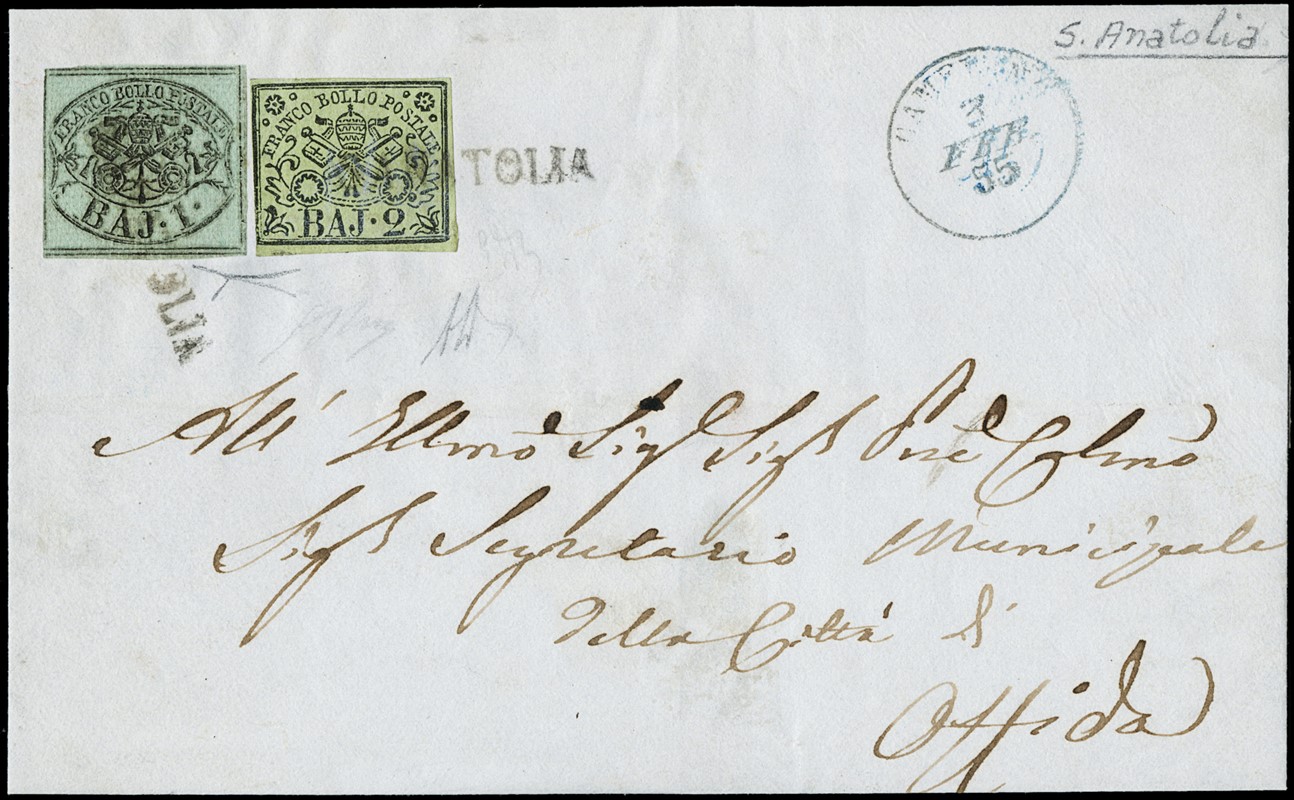 S. Anatolia
FRANCO BOLLO POSTALE
BAJ. 1.
FRANCO BOLLO POSTALE
BAJ. 2
TOLIA
OLIA
CAMERINO
FEB
55
All' Illmo Sigr Sigr Prne Colmo
Sigr Segretario Municipale
della Città di
Offida